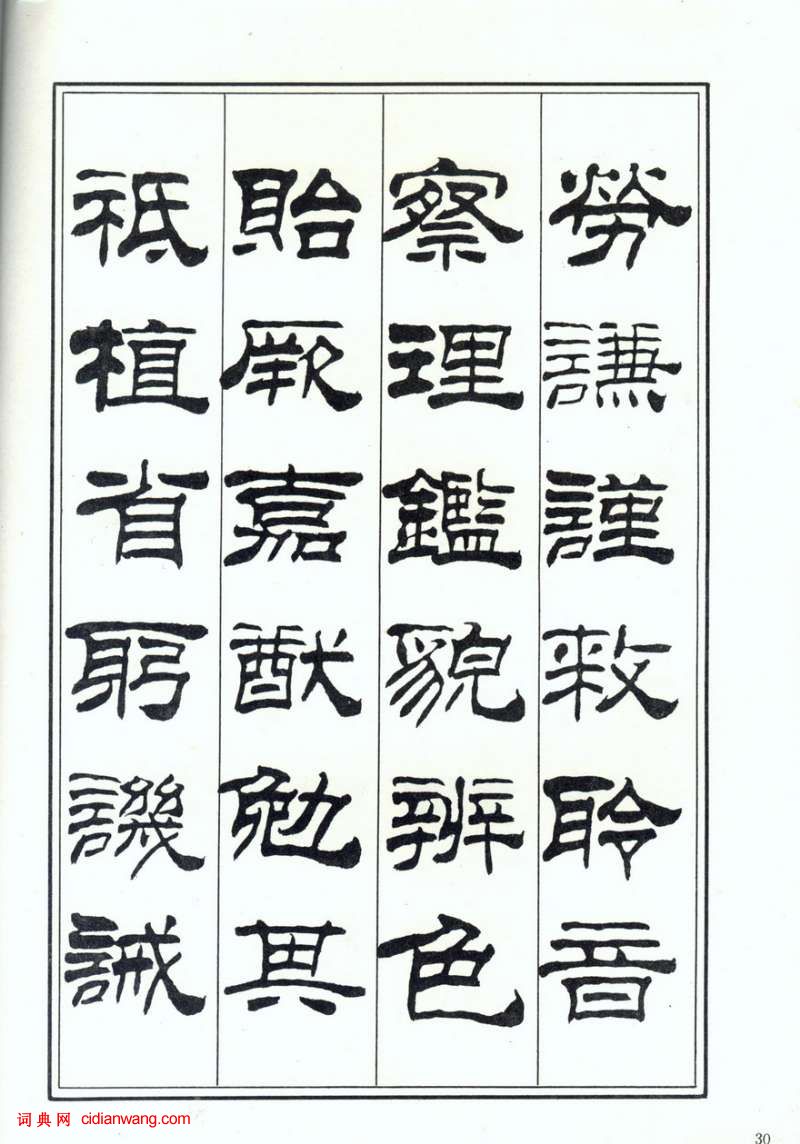 勞謙謹敕聆音
察理鑑貌辨色
貽厥嘉猷勉其
祗植省躬譏誡
词典网 cidianwang.com
30